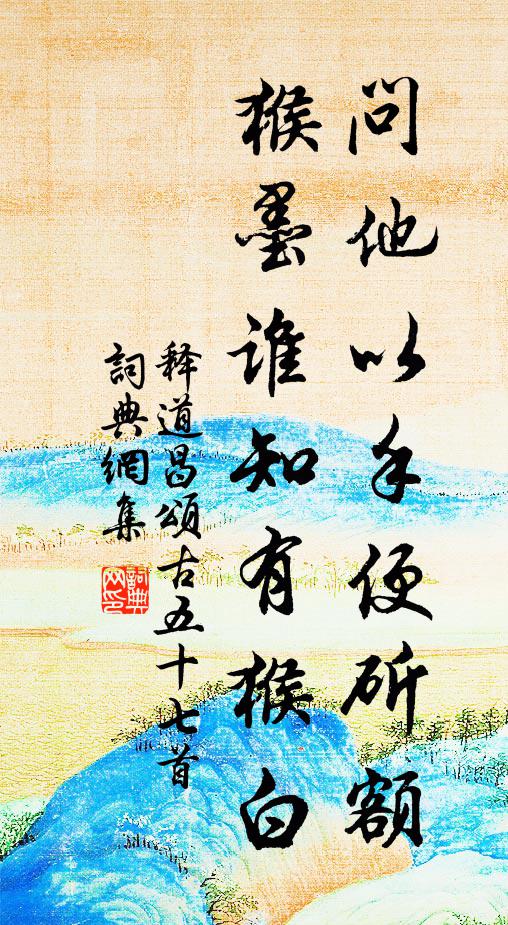 问他以手便斫额
猴墨谁知有猴白
释道昌颂古五十七首
詞典網集
詞典網印